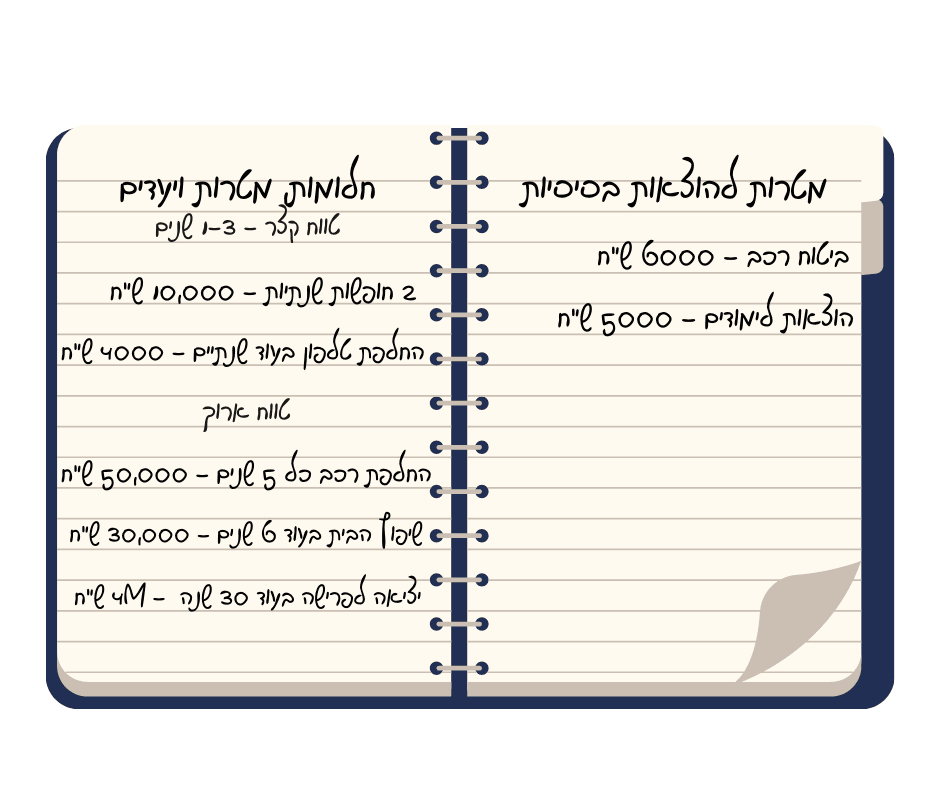 מטרות להוצאות בסיסיות
ביטוח רכב – 6000 ש"ח
הוצאות לימודים – 5000 ש"ח
חלומות, מטרות ויעדים
טווח קצר – 1-3 שנים
2 חופשות שנתיות – 10,000 ש"ח
החלפת טלפון בעוד שנתיים – 4000 ש"ח
טווח ארוך
החלפת רכב כל 5 שנים – 50,000 ש"ח
שיפוץ הבית בעוד 6 שנים – 30,000 ש"ח
יציאה לפרישה בעוד 30 שנה – 4M ש"ח